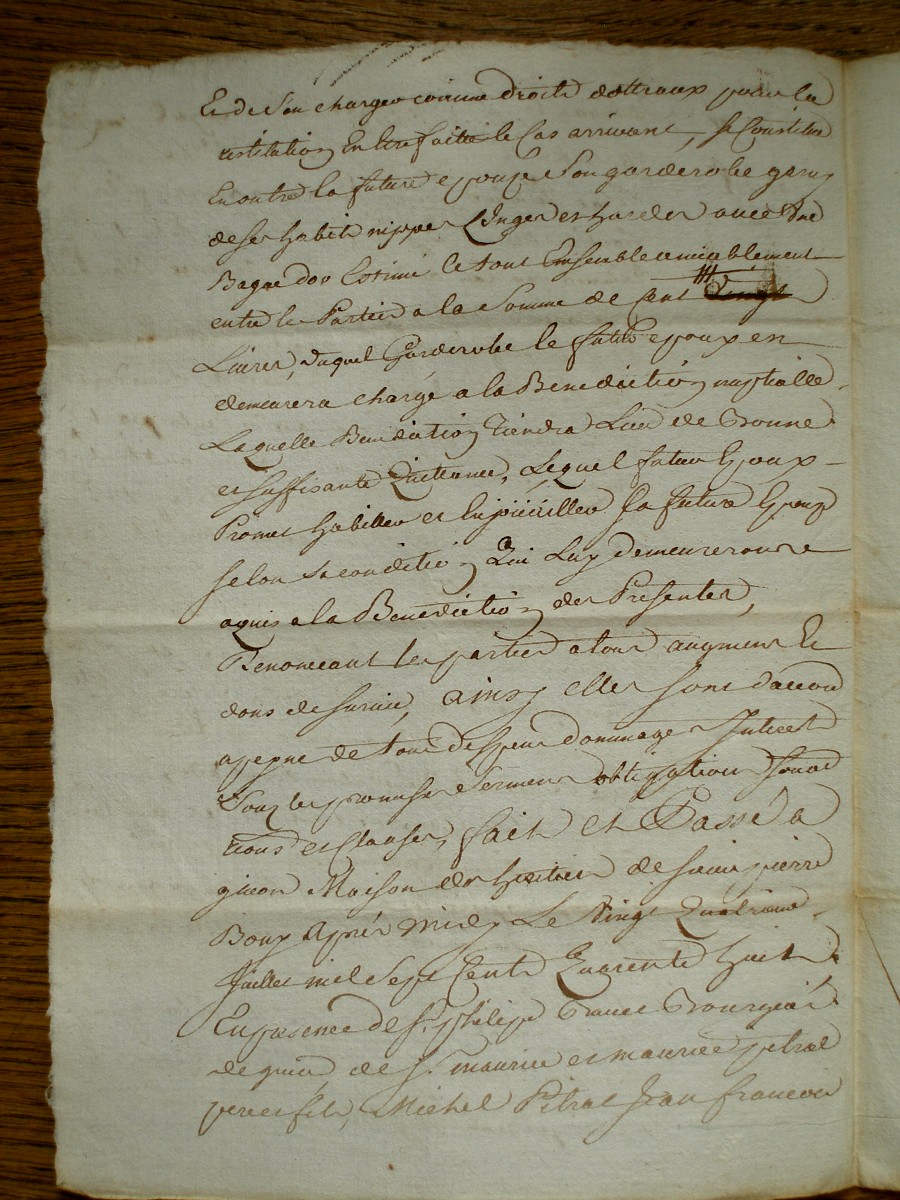 Et de s'en charger comme droits dotteaux pour la
restitution En Etre faitte le Cas arrivant, se Constitue
En outre la future epouze Son garderobe garny
de ses habits nippes Linges et hardes avec Une
Bague dor Estimé Le tout Ensemble amiablement
entre le Parties a la Somme de Cent
Livres, Duquel Garderobe le futur epoux en
demeurera chargé a la Benediction nuptialle
Laquelle Benediction Tiendra Lieu de Bonne
et suffisante Quittance, Lequel futur Epoux
Promet habiller et Enjoieiller sa future Epouze
selon sa condition Qui Luy demeureront
aquis a la Benediction des Presentes,
Renonceant les parties a tout augment Et
dons de survie, ainsy elles sont daccord
a peyne de tous despens dommages Interest
Sous les promises serment obligation
tions et Clauses, fait et Passé a
Maison des de pierre
Boux Après midy Le Vingt Quatrieme
Juillet mil Sept Cents Quarente huit
En presence de Sr philippe Bourgeois
de de St maurice et maurice pitrat
pere et fils, Michel Pitrat Jean francois